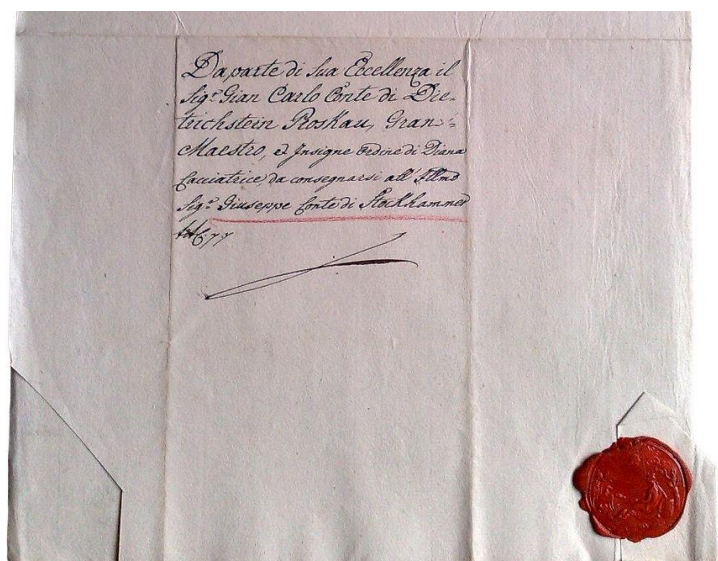 Da parte di Sua Eccellenza il
Sigr. Gian Carlo Conte di Die-
trichstein Proskau, Gran-
Maestro, e Insigne Ordine di Diana
Cacciatrice, da consegnarsi all' Illmo
Sigr. Giuseppe Conte di Stockhammer